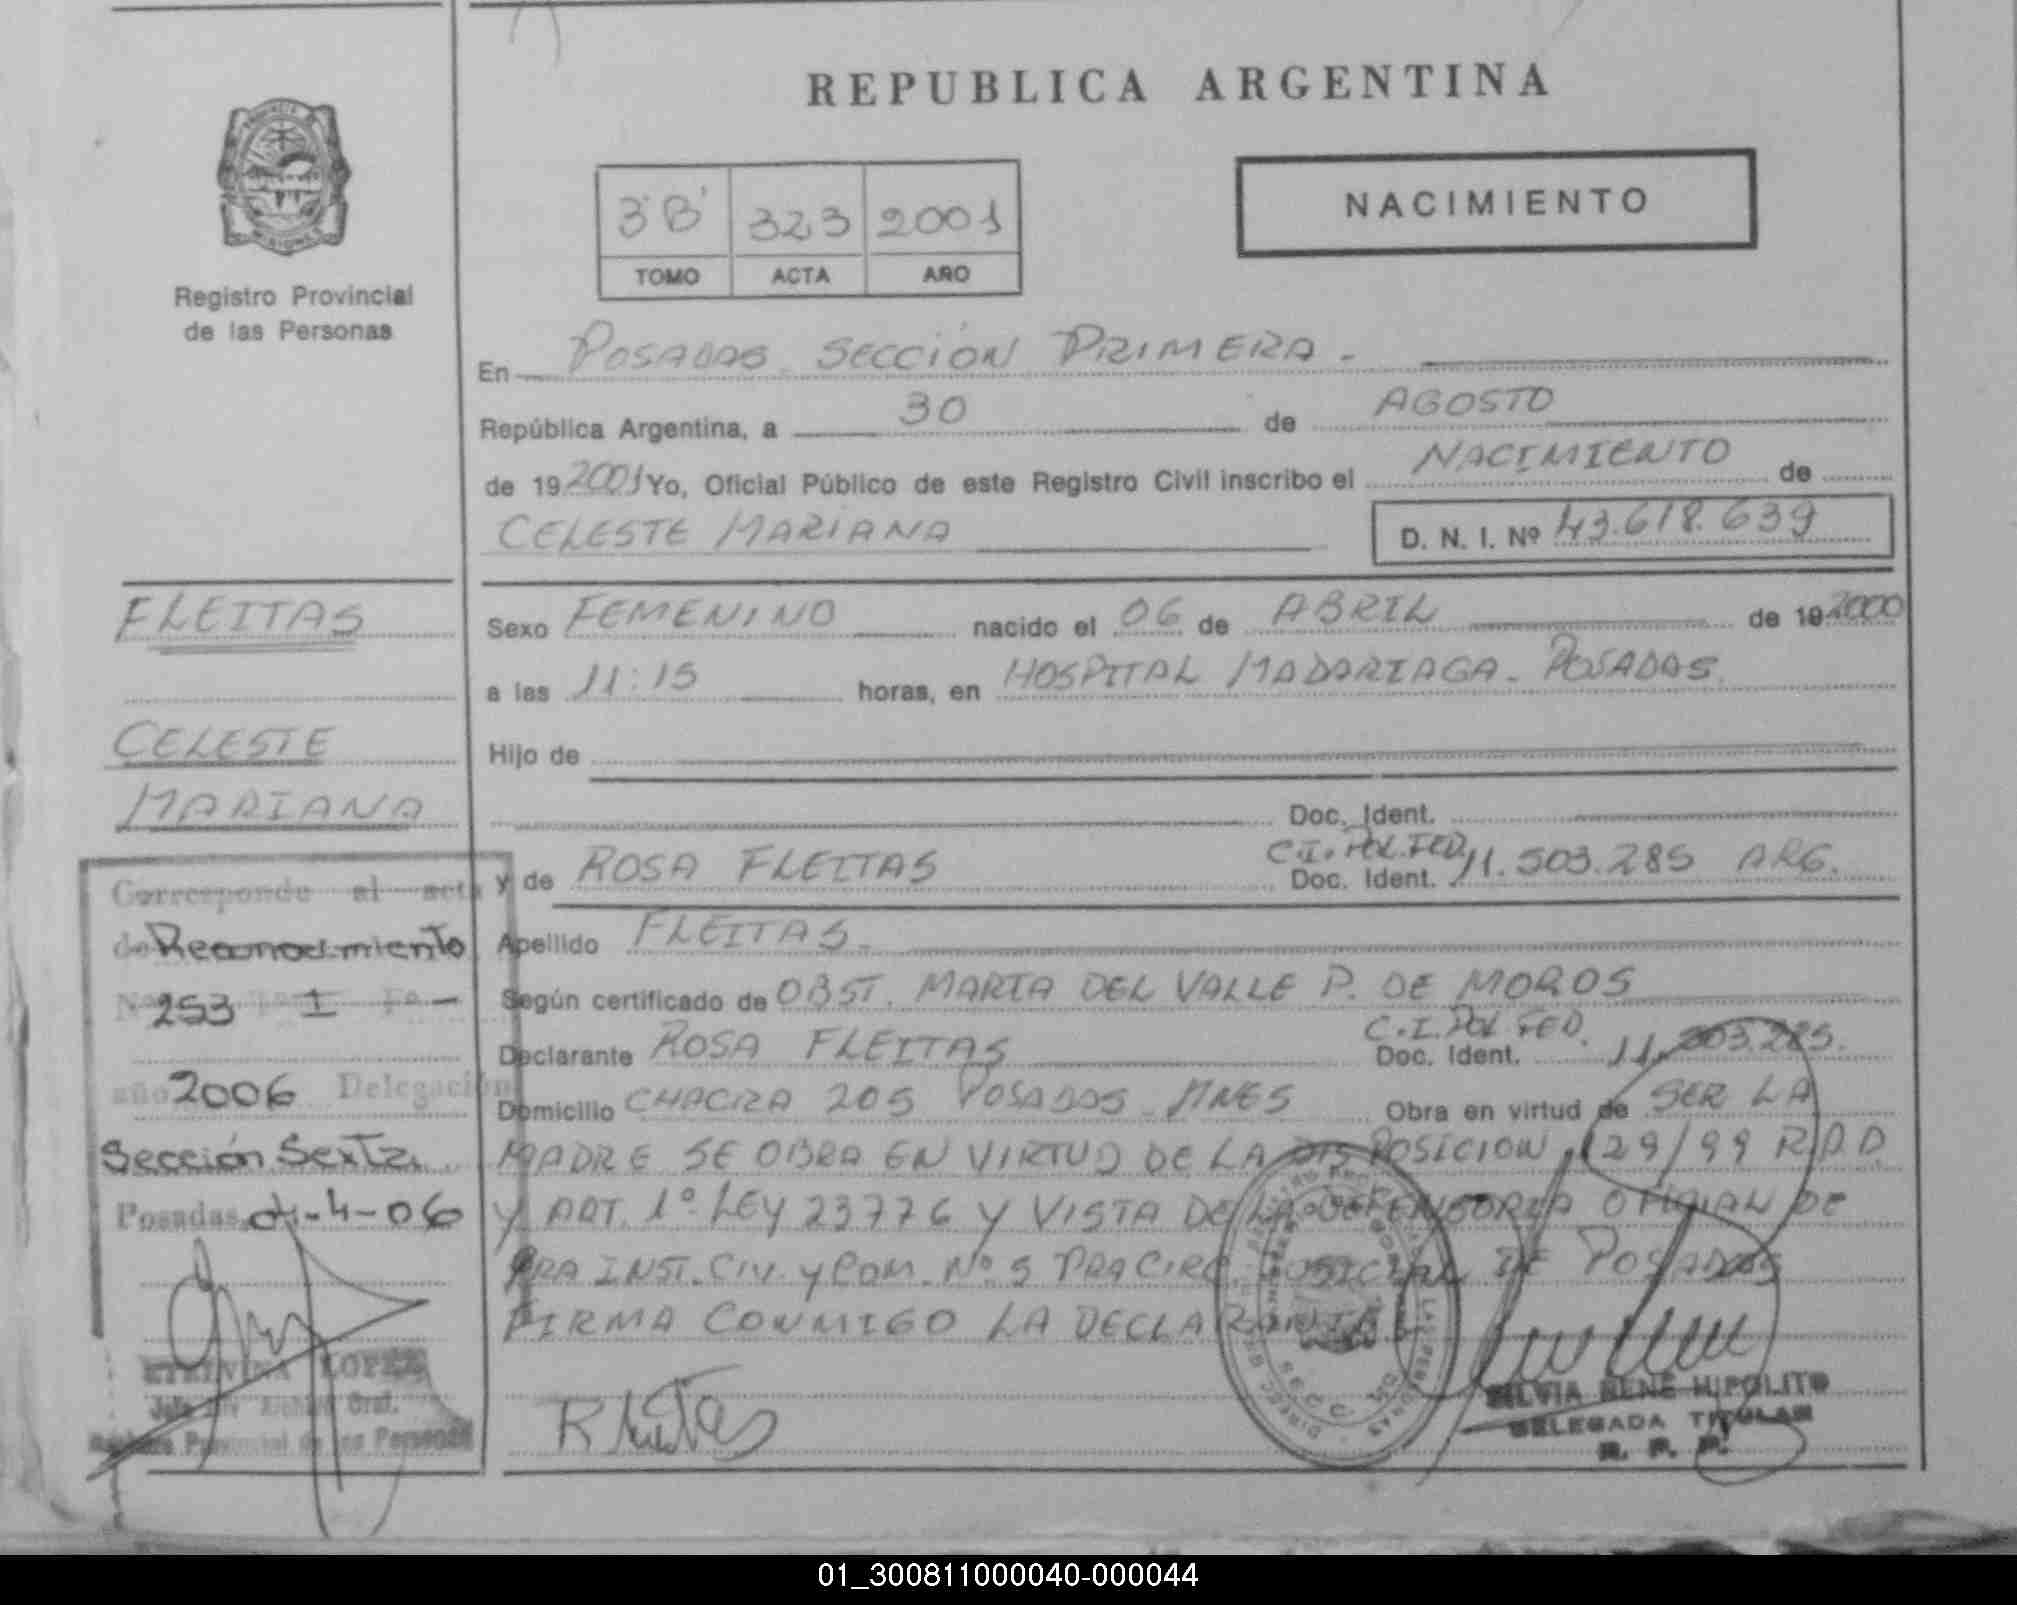 REPUBLICA ARGENTINA
NACIMIENTO
3 "B" 323 2001
TOMO ACTA AÑO
Registro Provincial
de las Personas
En POSADAS SECCIÓN PRIMERA.
República Argentina, a 30 de AGOSTO
de 19 2001 Yo, Oficial Público de este Registro Civil inscribo el NACIMIENTO de
CELESTE MARIANA D. N. I. Nº 43.618.639
FLEITAS
CELESTE
MARIANA
Sexo FEMENINO nacido el 06 de ABRIL de 19 2000
a las 11:15 horas, en HOSPITAL MADARIAGA - POSADAS.
Hijo de
Doc. Ident.
y de ROSA FLEITAS C.I. POL. FED. Doc. Ident. 11.503.285 ARG.
Apellido FLEITAS.
Según certificado de OBST. MARIA DEL VALLE P. DE MOROS
Declarante ROSA FLEITAS C.I. POL FED. Doc. Ident. 11.503.285.
Domicilio CHACRA 205 POSADAS - MNES Obra en virtud de SER LA
MADRE SE OBRA EN VIRTUD DE LA DISPOSICION 129/99 R.P.P.
Y ART. 1º LEY 23776 Y VISTA DE LA DEFENSORIA OFICIAL DE
1RA INST. CIV. Y COM. Nº 5 PRA CIRC. JUDICIAL DE POSADAS
FIRMA CONMIGO LA DECLARANTE
R Fleitas
SILVIA RENE HIPOLITO
DELEGADA TITULAR
R. P. P.
Corresponde al acta
de Reconocimiento
Nº 253 Tº I Fº -
año 2006 Delegación
Sección Sexta
Posadas, 04-4-06
ETELVINA LOPEZ
Jefe Archivo Gral.
Registro Provincial de las Personas
01_300811000040-000044